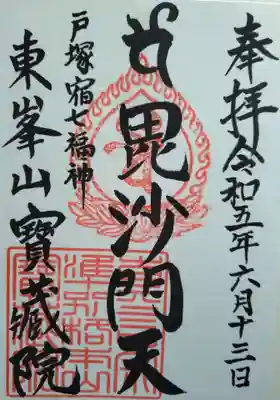 奉拝 令和五年六月十三日
毘沙門天
戸塚宿七福神
東峯山 寶蔵院